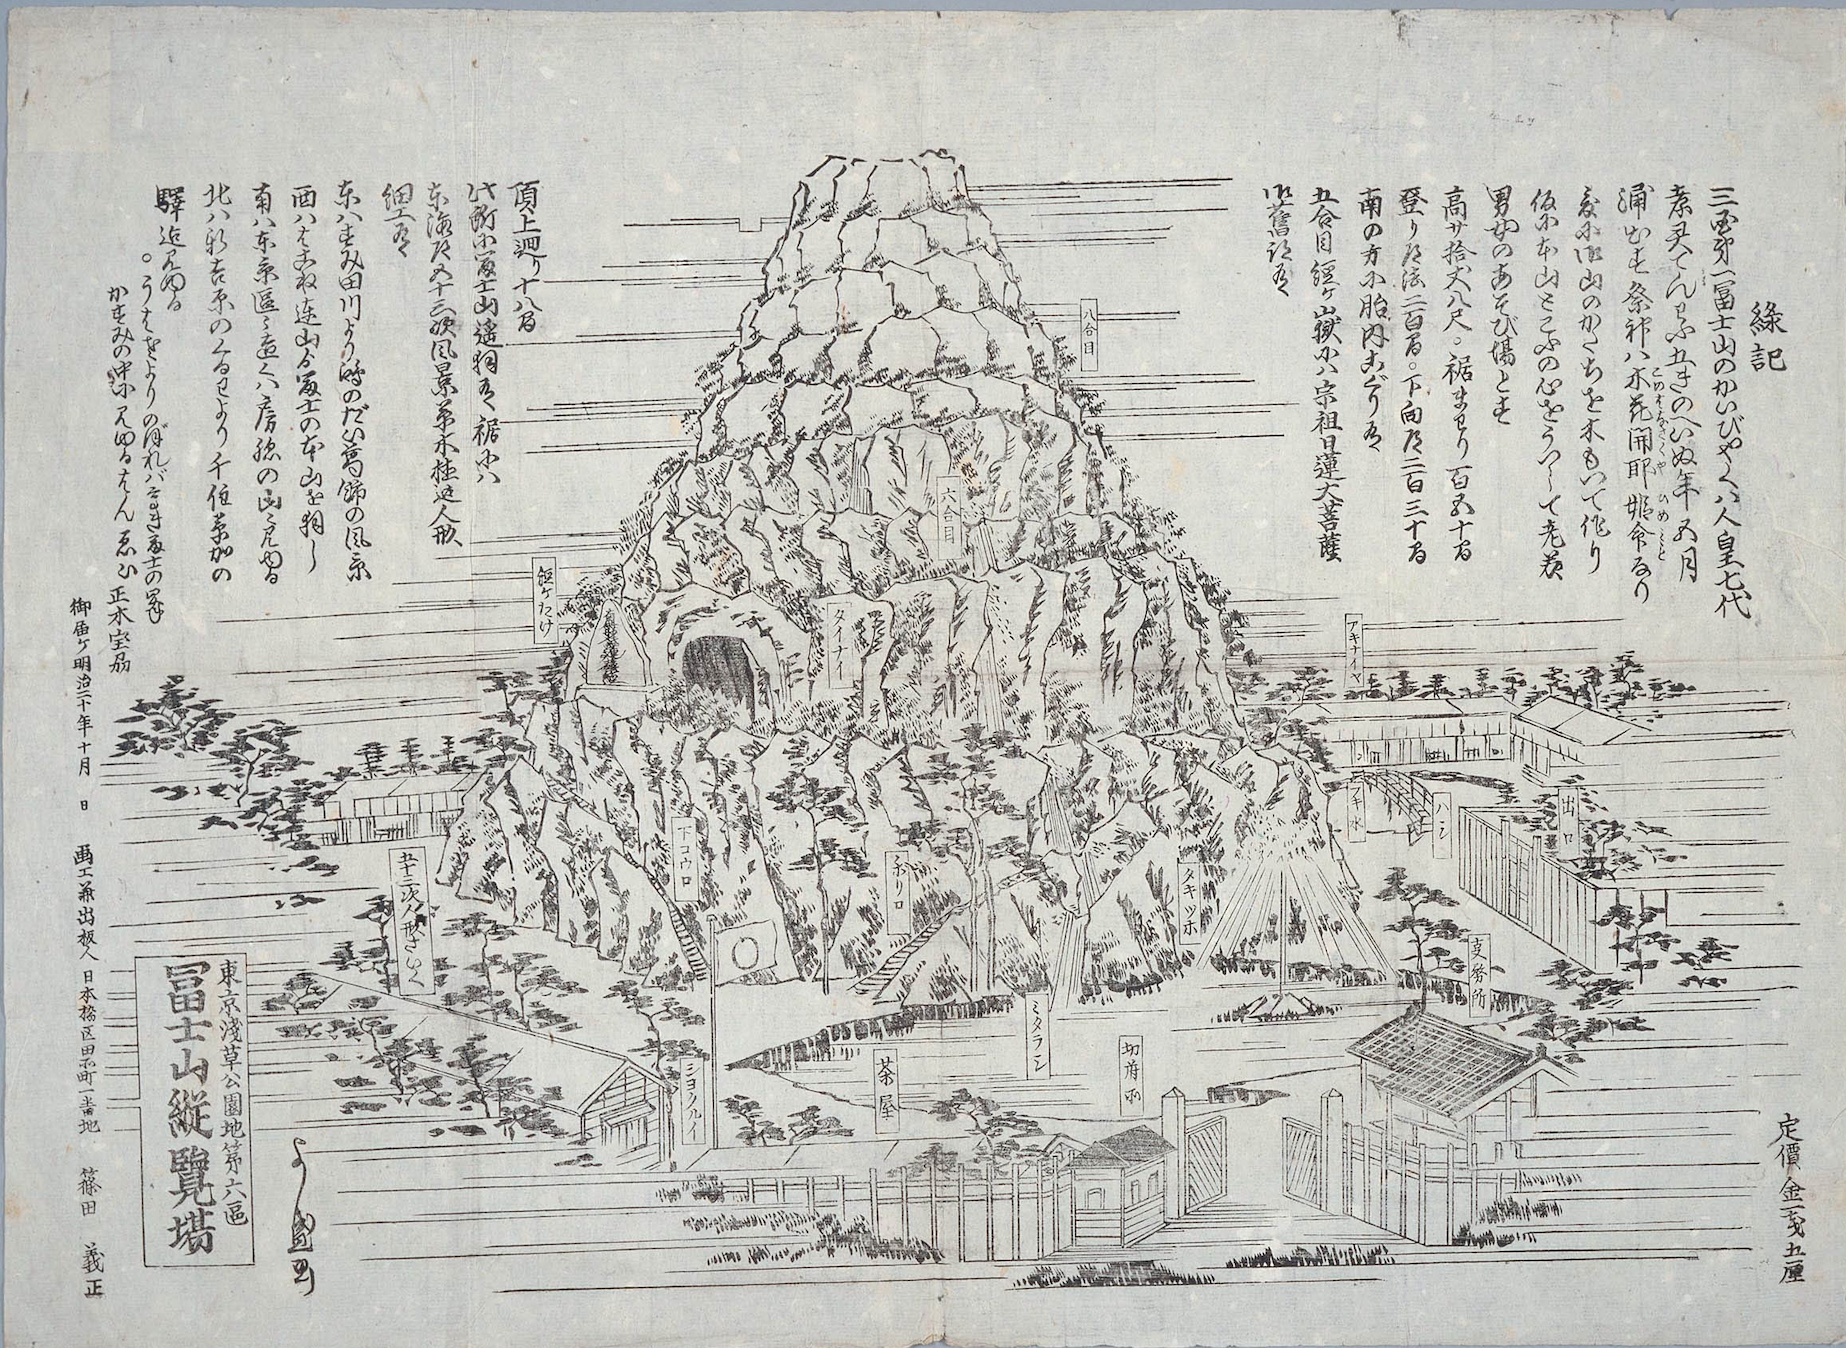 縁記
三国第一冨士山のかいびやくハ人皇七代
孝灵てんわふ五きのへいぬ年五月
涌出も祭神ハ木花開耶姫命なり
このはなさくや ひめみこと
爰に此山のかたちを木もいて作り
仮に本山とこふの心をうつして老若
男女のあそび場とす
高サ拾丈八尺。裾まわり百五十間
登り道法二百間。下向道二百三十間
南の方に胎内あぐり有
五合目経ヶ嶽にハ宗祖日蓮大菩薩
此舊記有
頂上廻り十八間
此所に冨士山遥拝有裾にハ
東海道五十三次風景并木植込人形
細工有
東ハすみ田川より鴻のだい葛飾の風京
西ハはこね連山より冨士の本山を拝し
南ハ東京區々遠くハ房総の山々見ゆる
北ハ新吉原のくるわより千住草加の
驛迄見ゆる
。うはをよりのぼれバ冨士の
かすみの中に見ゆるはん
八合目
六合目
経ケたけ
タイナイ
アキナイヤ
フキ水
ハシ
出口
下コウロ
のりロ
タキツボ
五十三次人形さいく
事務所
ミタラシ
切符所
茶屋
ショルイ
東京淺草公園地第六區
冨士山縦覧場
御届ケ明治二十年十月 日 画工兼出板人 日本橋区田所町一番地 篠田 義正
定價金一銭五厘